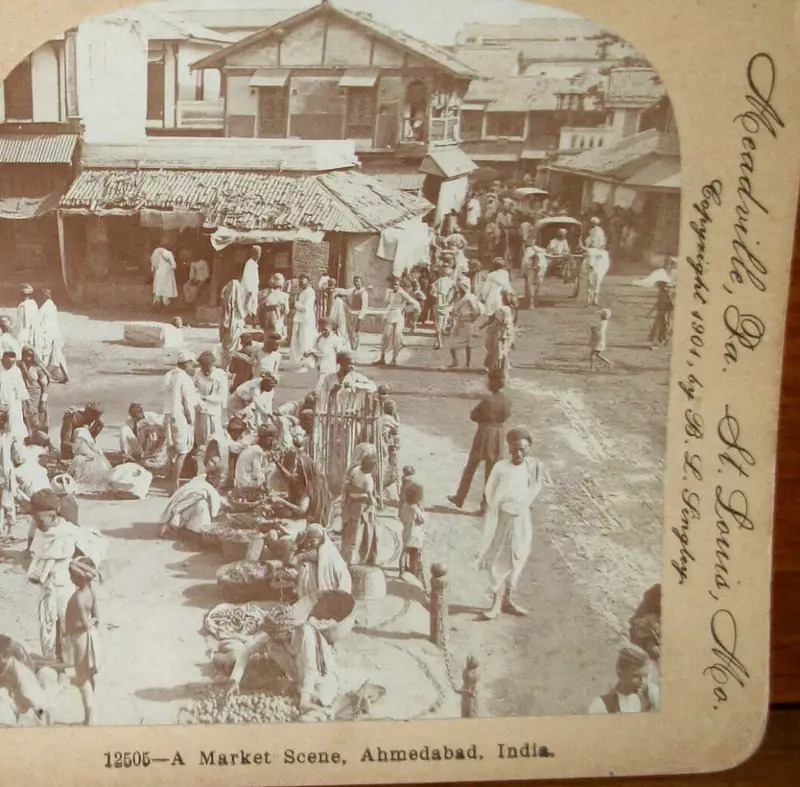 Meadville, Pa. St. Louis, Mo.
Copyright 1901, by B. L. Singley.
12505—A Market Scene, Ahmedabad, India.